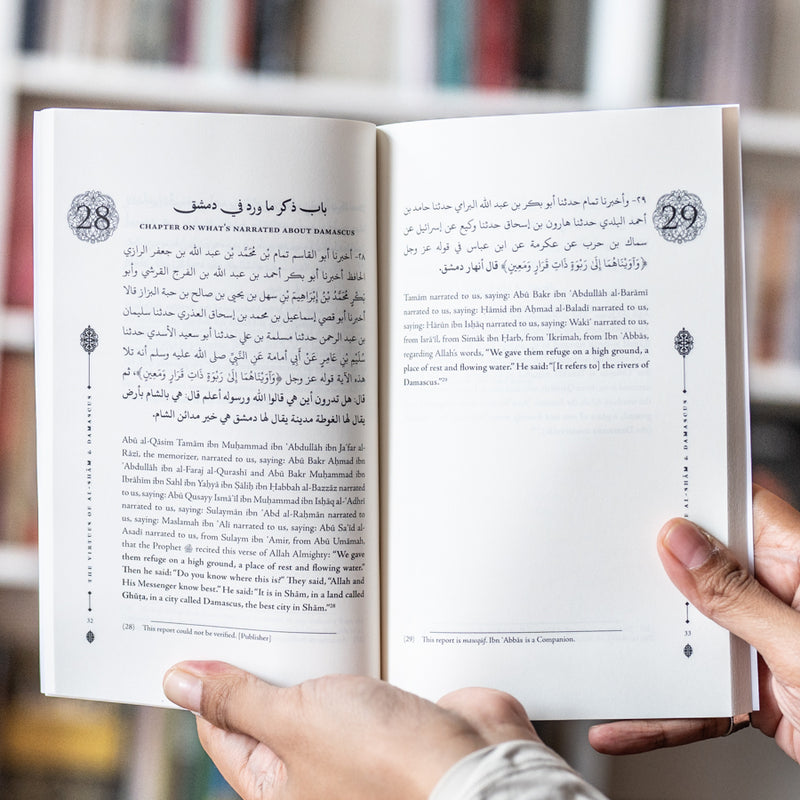 28
باب ذكر ما ورد في دمشق
CHAPTER ON WHAT'S NARRATED ABOUT DAMASCUS
٢٨- أخبرنا أبو القاسم تمام بْن مُحَمَّد بْن عبد الله بن جعفر الرازي
الحافظ أخبرنا أبو بكر أحمد بن عبد الله بن الفرج القرشي وأبو
بَكْرٍ مُحَمَّدُ بْنُ إِبْرَاهِيمَ بْنِ سهل بن يحيى بن صالح بن حبة البزاز قالا
أخبرنا أبو قصي إسماعيل بن محمد بن إسحاق العذري حدثنا سليمان
بن عبد الرحمن حدثنا مسلمة بن علي حدثنا أبو سعيد الأسدي حدثنا
سُلَيْمِ بْنِ عَامِرٍ عَنْ أَبِي أمامة عَنِ النَّبِيِّ صلى الله عليه وسلم أنه تلا
هذه الآية قوله عز وجل ﴿وَآوَيْنَاهُمَا إِلَى رَبْوَةٍ ذَاتِ قَرَارٍ وَمَعِينٍ﴾، ثم
قال: هل تدرون أين هي قالوا الله ورسوله أعلم قال: هي بالشام بأرض
يقال لها الغوطة مدينة يقال لها دمشق هي خير مدائن الشام.
Abū al-Qāsim Tamām ibn Muḥammad ibn ʿAbdullāh ibn Jaʿfar al-
Rāzī, the memorizer, narrated to us, saying: Abū Bakr Aḥmad ibn
ʿAbdullāh ibn al-Faraj al-Qurashī and Abū Bakr Muḥammad ibn
Ibrāhīm ibn Sahl ibn Yaḥyā ibn Ṣāliḥ ibn Ḥabbah al-Bazzāz narrated
to us, saying: Abū Quṣayy Ismāʿīl ibn Muḥammad ibn Isḥāq al-ʿAdhrī
narrated to us, saying: Sulaymān ibn ʿAbd al-Raḥmān narrated to
us, saying: Maslamah ibn ʿAlī narrated to us, saying: Abū Saʿīd al-
Asadī narrated to us, from Sulaym ibn ʿAmir, from Abū Umāmah,
that the Prophet ﷺ recited this verse of Allah Almighty: "We gave
them refuge on a high ground, a place of rest and flowing water."
Then he said: "Do you know where this is?" They said, "Allah and
His Messenger know best." He said: "It is in Shām, in a land called
Ghūṭa, in a city called Damascus, the best city in Shām."28
(28) This report could not be verified. [Publisher]
THE VIRTUES OF AL-SHĀM & DAMASCUS
32
29
٢٩- وأخبرنا تمام حدثنا أبو بكر بن عبد الله البرامي حدثنا حامد بن
أحمد البلدي حدثنا هارون بن إسحاق حدثنا وكيع عن إسرائيل عن
سماك بن حرب عن عكرمة عن ابن عباس في قوله عز وجل
﴿وَآوَيْنَاهُمَا إِلَى رَبْوَةٍ ذَاتِ قَرَارٍ وَمَعِينٍ﴾ قال أنهار دمشق.
Tamām narrated to us, saying: Abū Bakr ibn ʿAbdullāh al-Barāmī
narrated to us, saying: Ḥāmid ibn Aḥmad al-Baladī narrated to us,
saying: Hārūn ibn Isḥāq narrated to us, saying: Wakīʿ narrated to us,
from Isrāʾīl, from Simāk ibn Ḥarb, from ʿIkrimah, from Ibn ʿAbbās,
regarding Allah's words, "We gave them refuge on a high ground, a
place of rest and flowing water." He said: "[It refers to] the rivers of
Damascus."29
(29) This report is mawqūf. Ibn ʿAbbās is a Companion.
AL-SHĀM & DAMASCUS
33